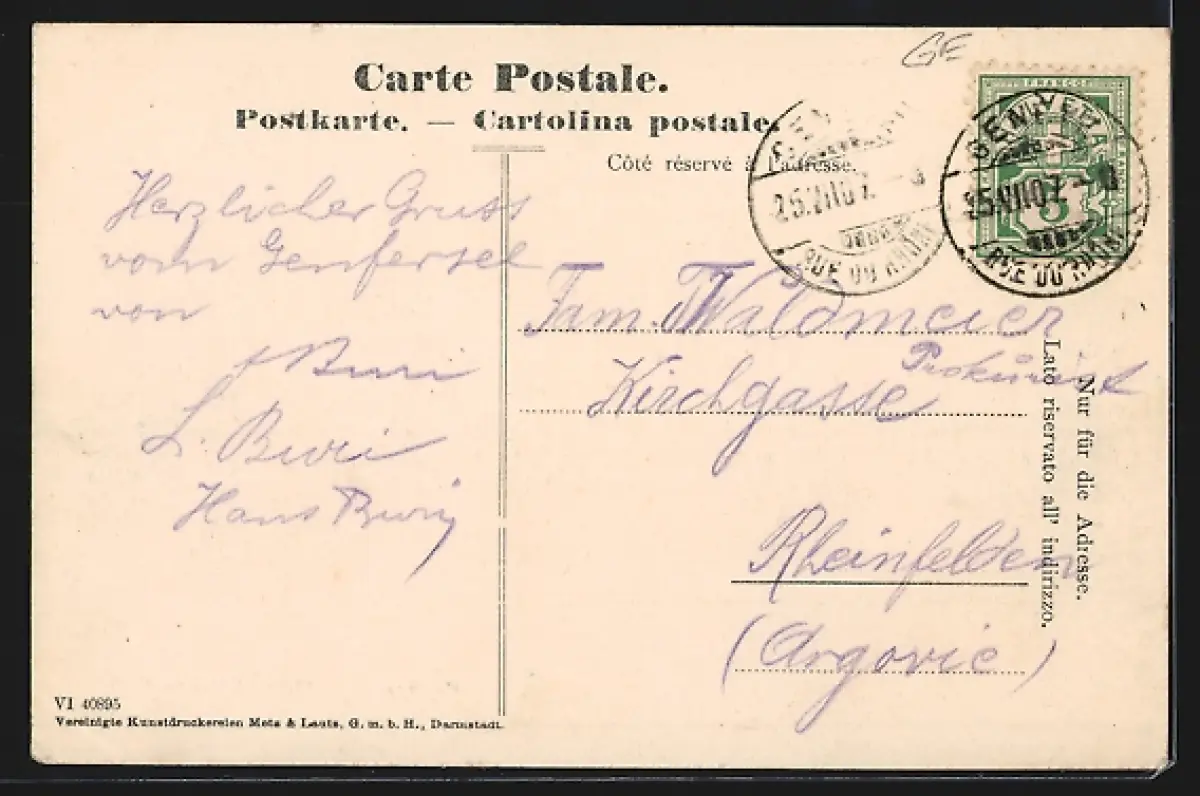 GE
Carte Postale.
Postkarte. — Cartolina postale.
Côté réservé à l'adresse.
FRANCO
5
GENÈVE
25.VII.07.
RUE DU RHÔNE
25.VII.07.
RUE DU RHÔNE
Herzlicher Gruss
vom Genfersee
von
Buri
L. Buri
Hans Buri
Fam. Waldmeier
Prokurist
Kirchgasse
Rheinfelden
(Argovie)
Nur für die Adresse.
Lato riservato all' indirizzo.
VI 40895
Vereinigte Kunstdruckereien Metz & Lautz, G. m. b. H., Darmstadt.